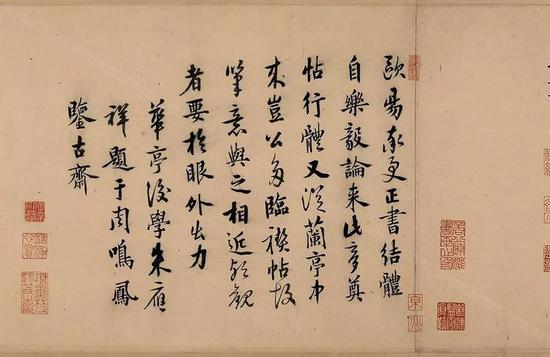 歐陽率更正書結體
自樂毅論來此夢奠
帖行體又從蘭亭中
來豈公多臨禊帖故
筆意與之相近歟觀
者要於眼外出力
華亭後學朱應
祥題于周鳴鳳
鑒古齋